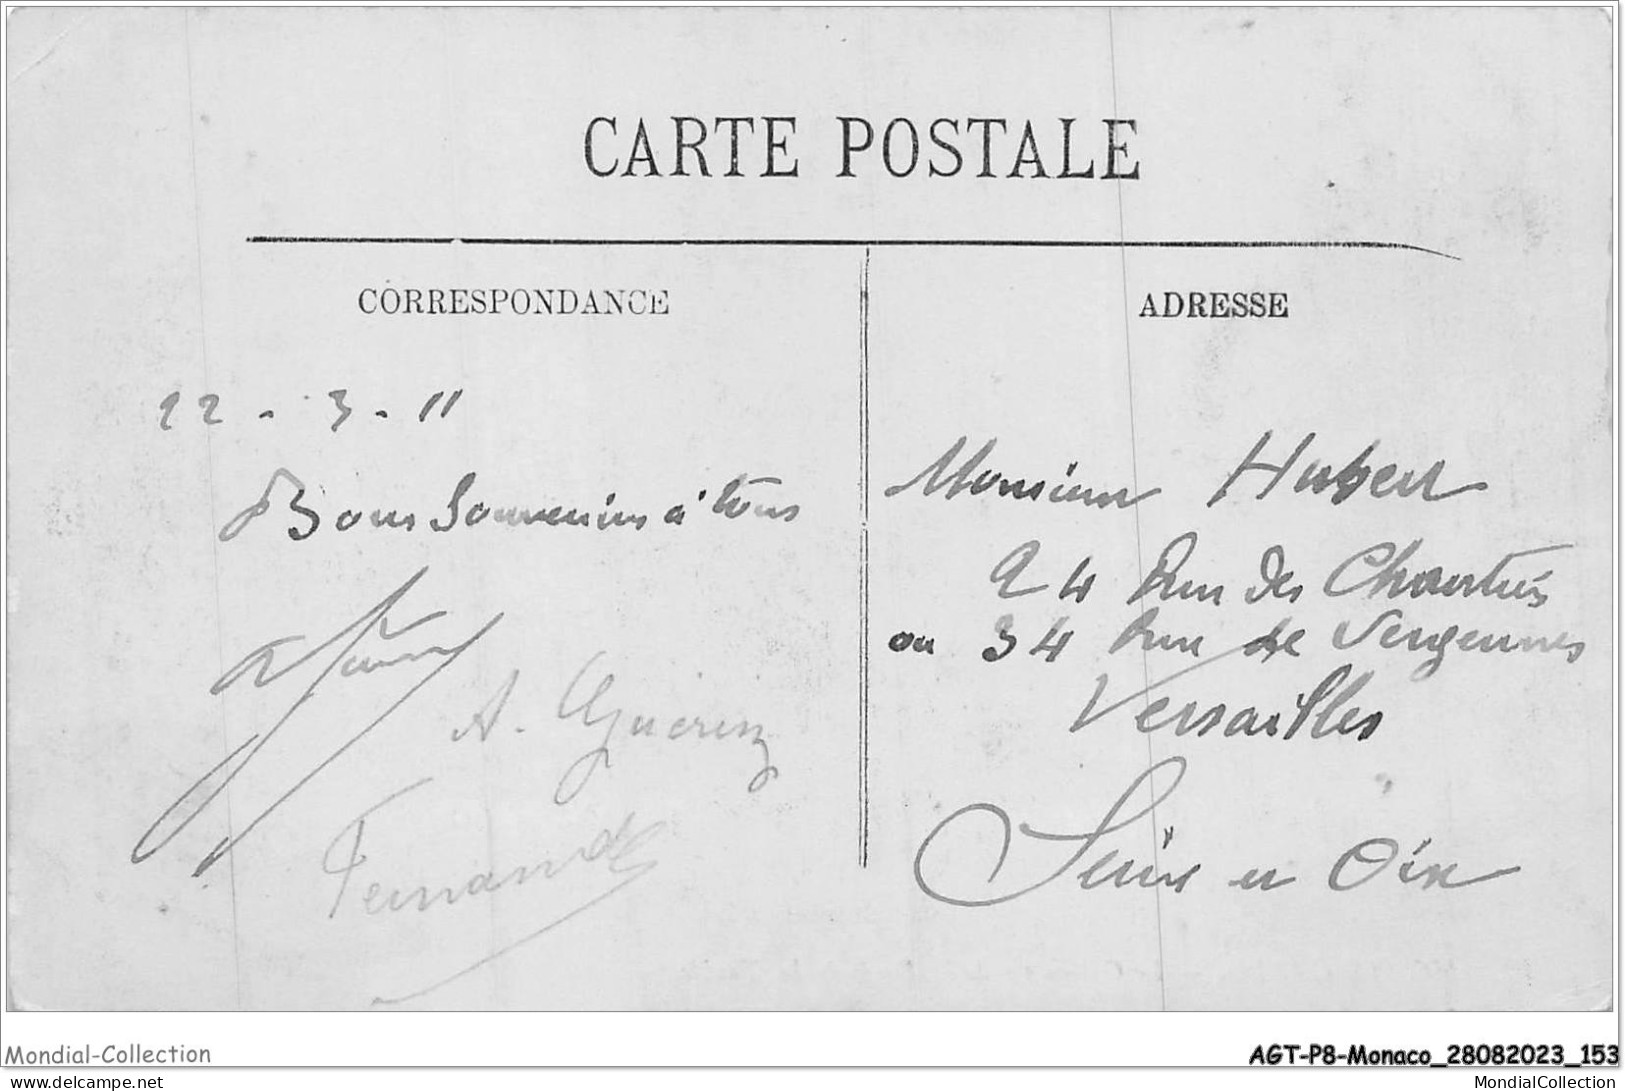 CARTE POSTALE
CORRESPONDANCE
22 - 3 - 11
Bons Souvenirs à tous
A. Guerin
Fernande
ADRESSE
Monsieur Hubert
24 Rue des Chantiers
ou 34 Rue de Vergennes
Versailles
Seine et Oise
Mondial-Collection
AGT-P8-Monaco_28082023_153
www.delcampe.net
MondialCollection